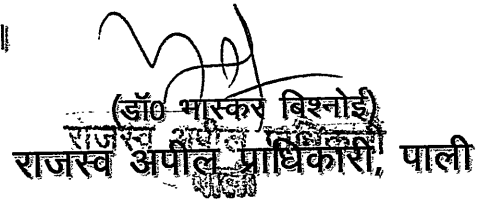 ।
(डॉ० भास्कर बिश्नोई)
राजस्व अपील प्राधिकारी
राजस्व अपील प्राधिकारी, पाली